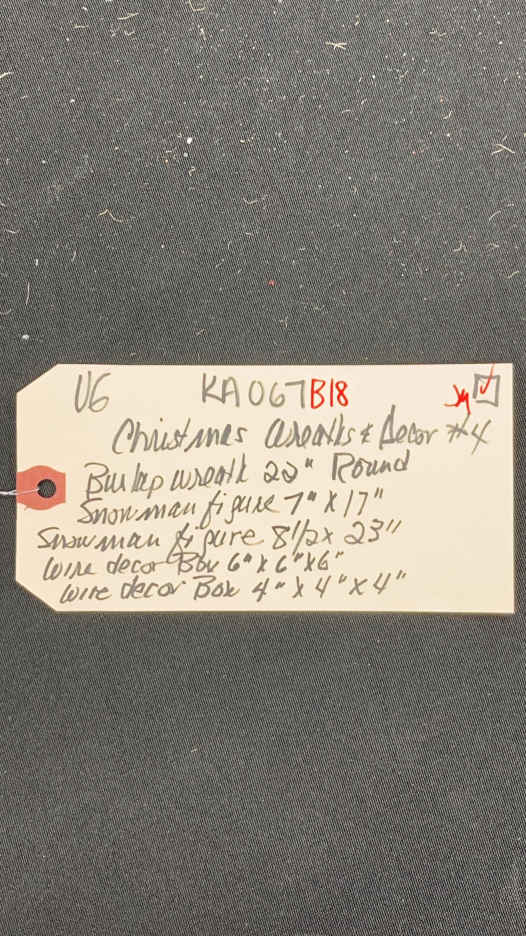 U6 KA067B18
Christmas Wreaths & Decor #4
Burlap wreath 22" Round
Snowman figure 7" X 17"
Snowman figure 8 1/2 x 23"
Wire decor Box 6" X 6" X 6"
Wire decor Box 4" X 4" X 4"